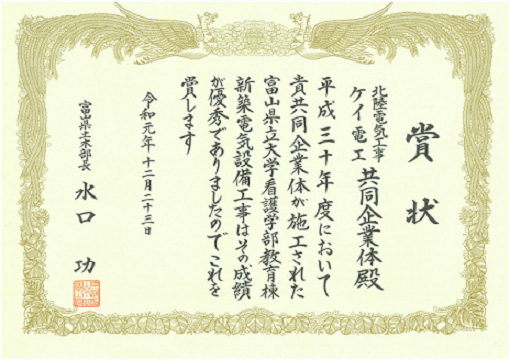 賞状
北陸電気工事
ケイ電工
共同企業体殿
平成三十年度において
貴共同企業体が施工された
富山県立大学看護学部教育棟
新築電気設備工事はその成績
が優秀でありましたのでこれを
賞します
令和元年十二月二十三日
富山県土木部長
水口功